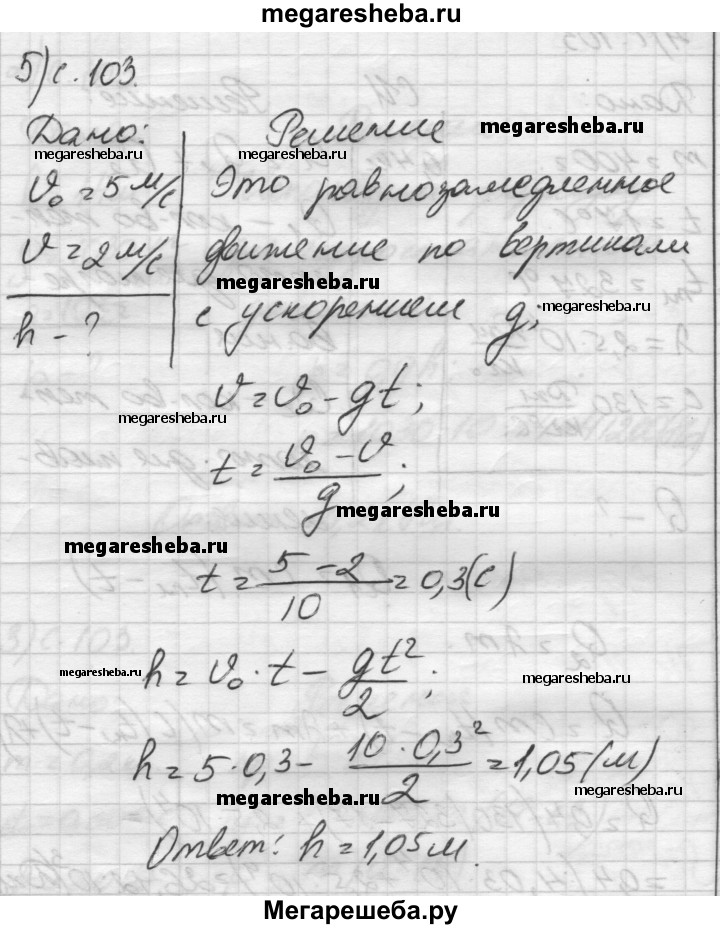 megaresheba.ru
5) с. 103.
Дано:
Решение
megaresheba.ru
megaresheba.ru
megaresheba.ru
v₀ = 5 м/с
Это равнозамедленное
v = 2 м/с
движение по вертикали
megaresheba.ru
h - ?
с ускорением g;
megaresheba.ru
v = v₀ - gt;
megaresheba.ru
t = (v₀ - v)/g;
megaresheba.ru
megaresheba.ru
t = (5 - 2)/10 = 0,3 (с)
h = v₀ · t - gt²/2;
megaresheba.ru
megaresheba.ru
h = 5 · 0,3 - (10 · 0,3²)/2 = 1,05 (м)
megaresheba.ru
megaresheba.ru
Ответ: h = 1,05 м.
Мегарешеба.ру